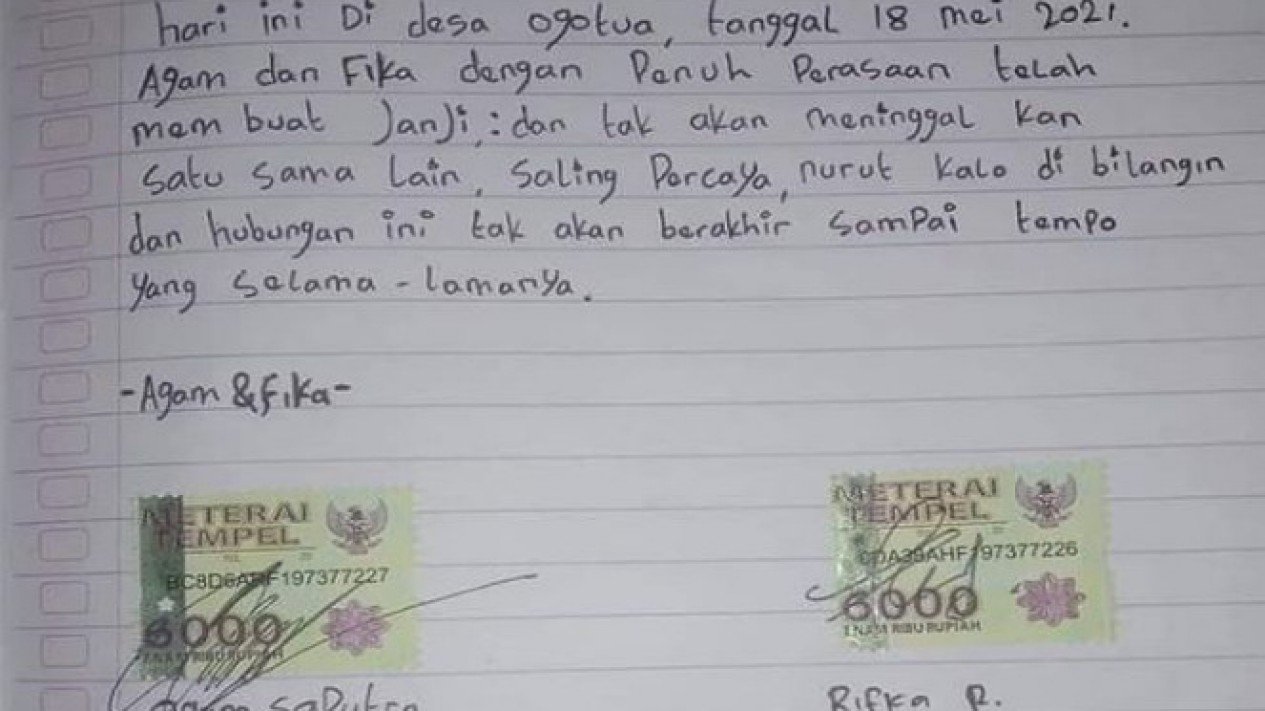 hari ini Di desa ogotua, tanggal 18 mei 2021.
Agam dan Fika dengan Penuh Perasaan telah
mem buat JanJi,: dan tak akan meninggal kan
satu sama Lain, Saling Percaya, nurut kalo di bilangin
dan hubungan ini tak akan berakhir SamPai tempo
yang Selama - lamanya.
-Agam & Fika-
METERAI TEMPEL
197377227
6000
ENAM RIBU RUPIAH
METERAI TEMPEL
197377226
6000
ENAM RIBU RUPIAH
Agam SaPutra
Rifka R.